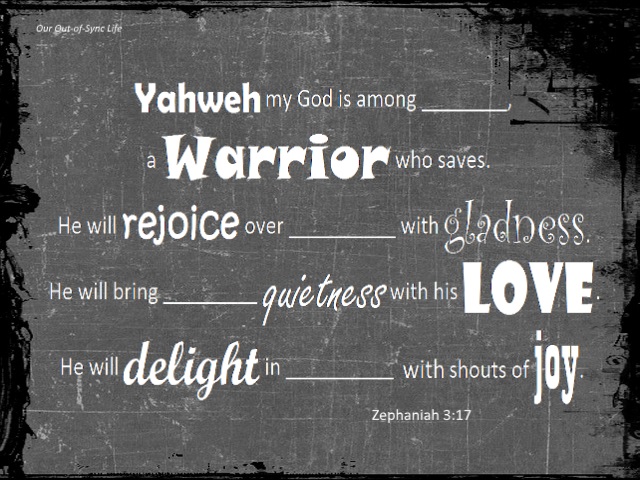 Our Out-of-Sync Life
Yahweh my God is among ________,
a Warrior who saves.
He will rejoice over _________ with gladness.
He will bring ________ quietness with his LOVE.
He will delight in _________ with shouts of joy.
Zephaniah 3:17